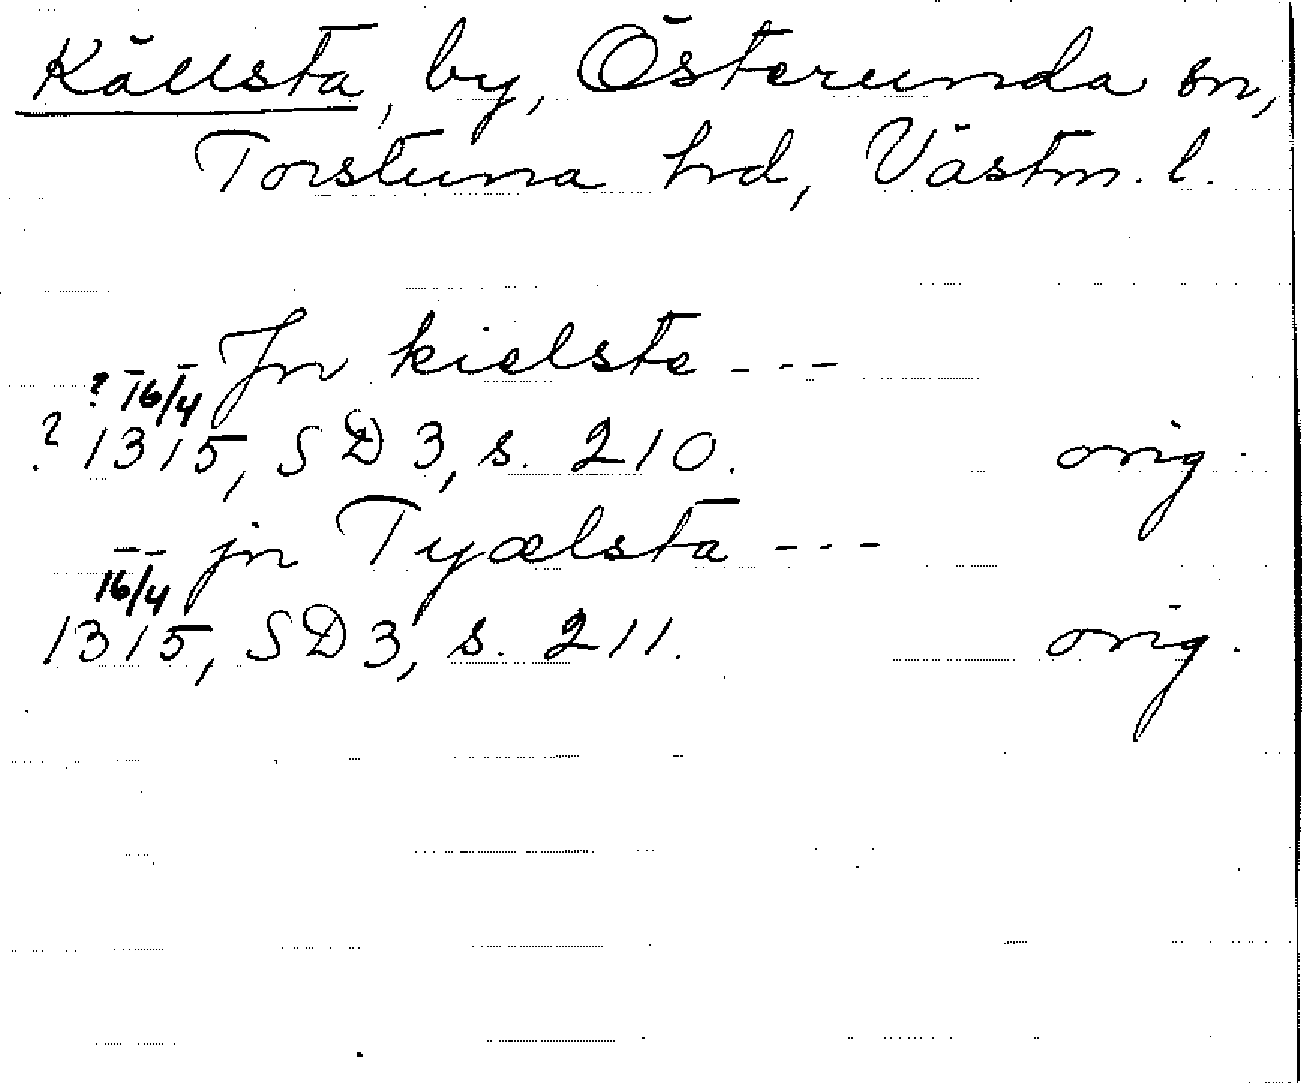 Källsta, by, Österunda sn,
Torstuna hrd, Västm. l.
Jn kielste ---
? 16/4
? 1315, SD 3, s. 210. orig.
jn Tyælsta ---
16/4
1315, SD 3, s. 211. orig.